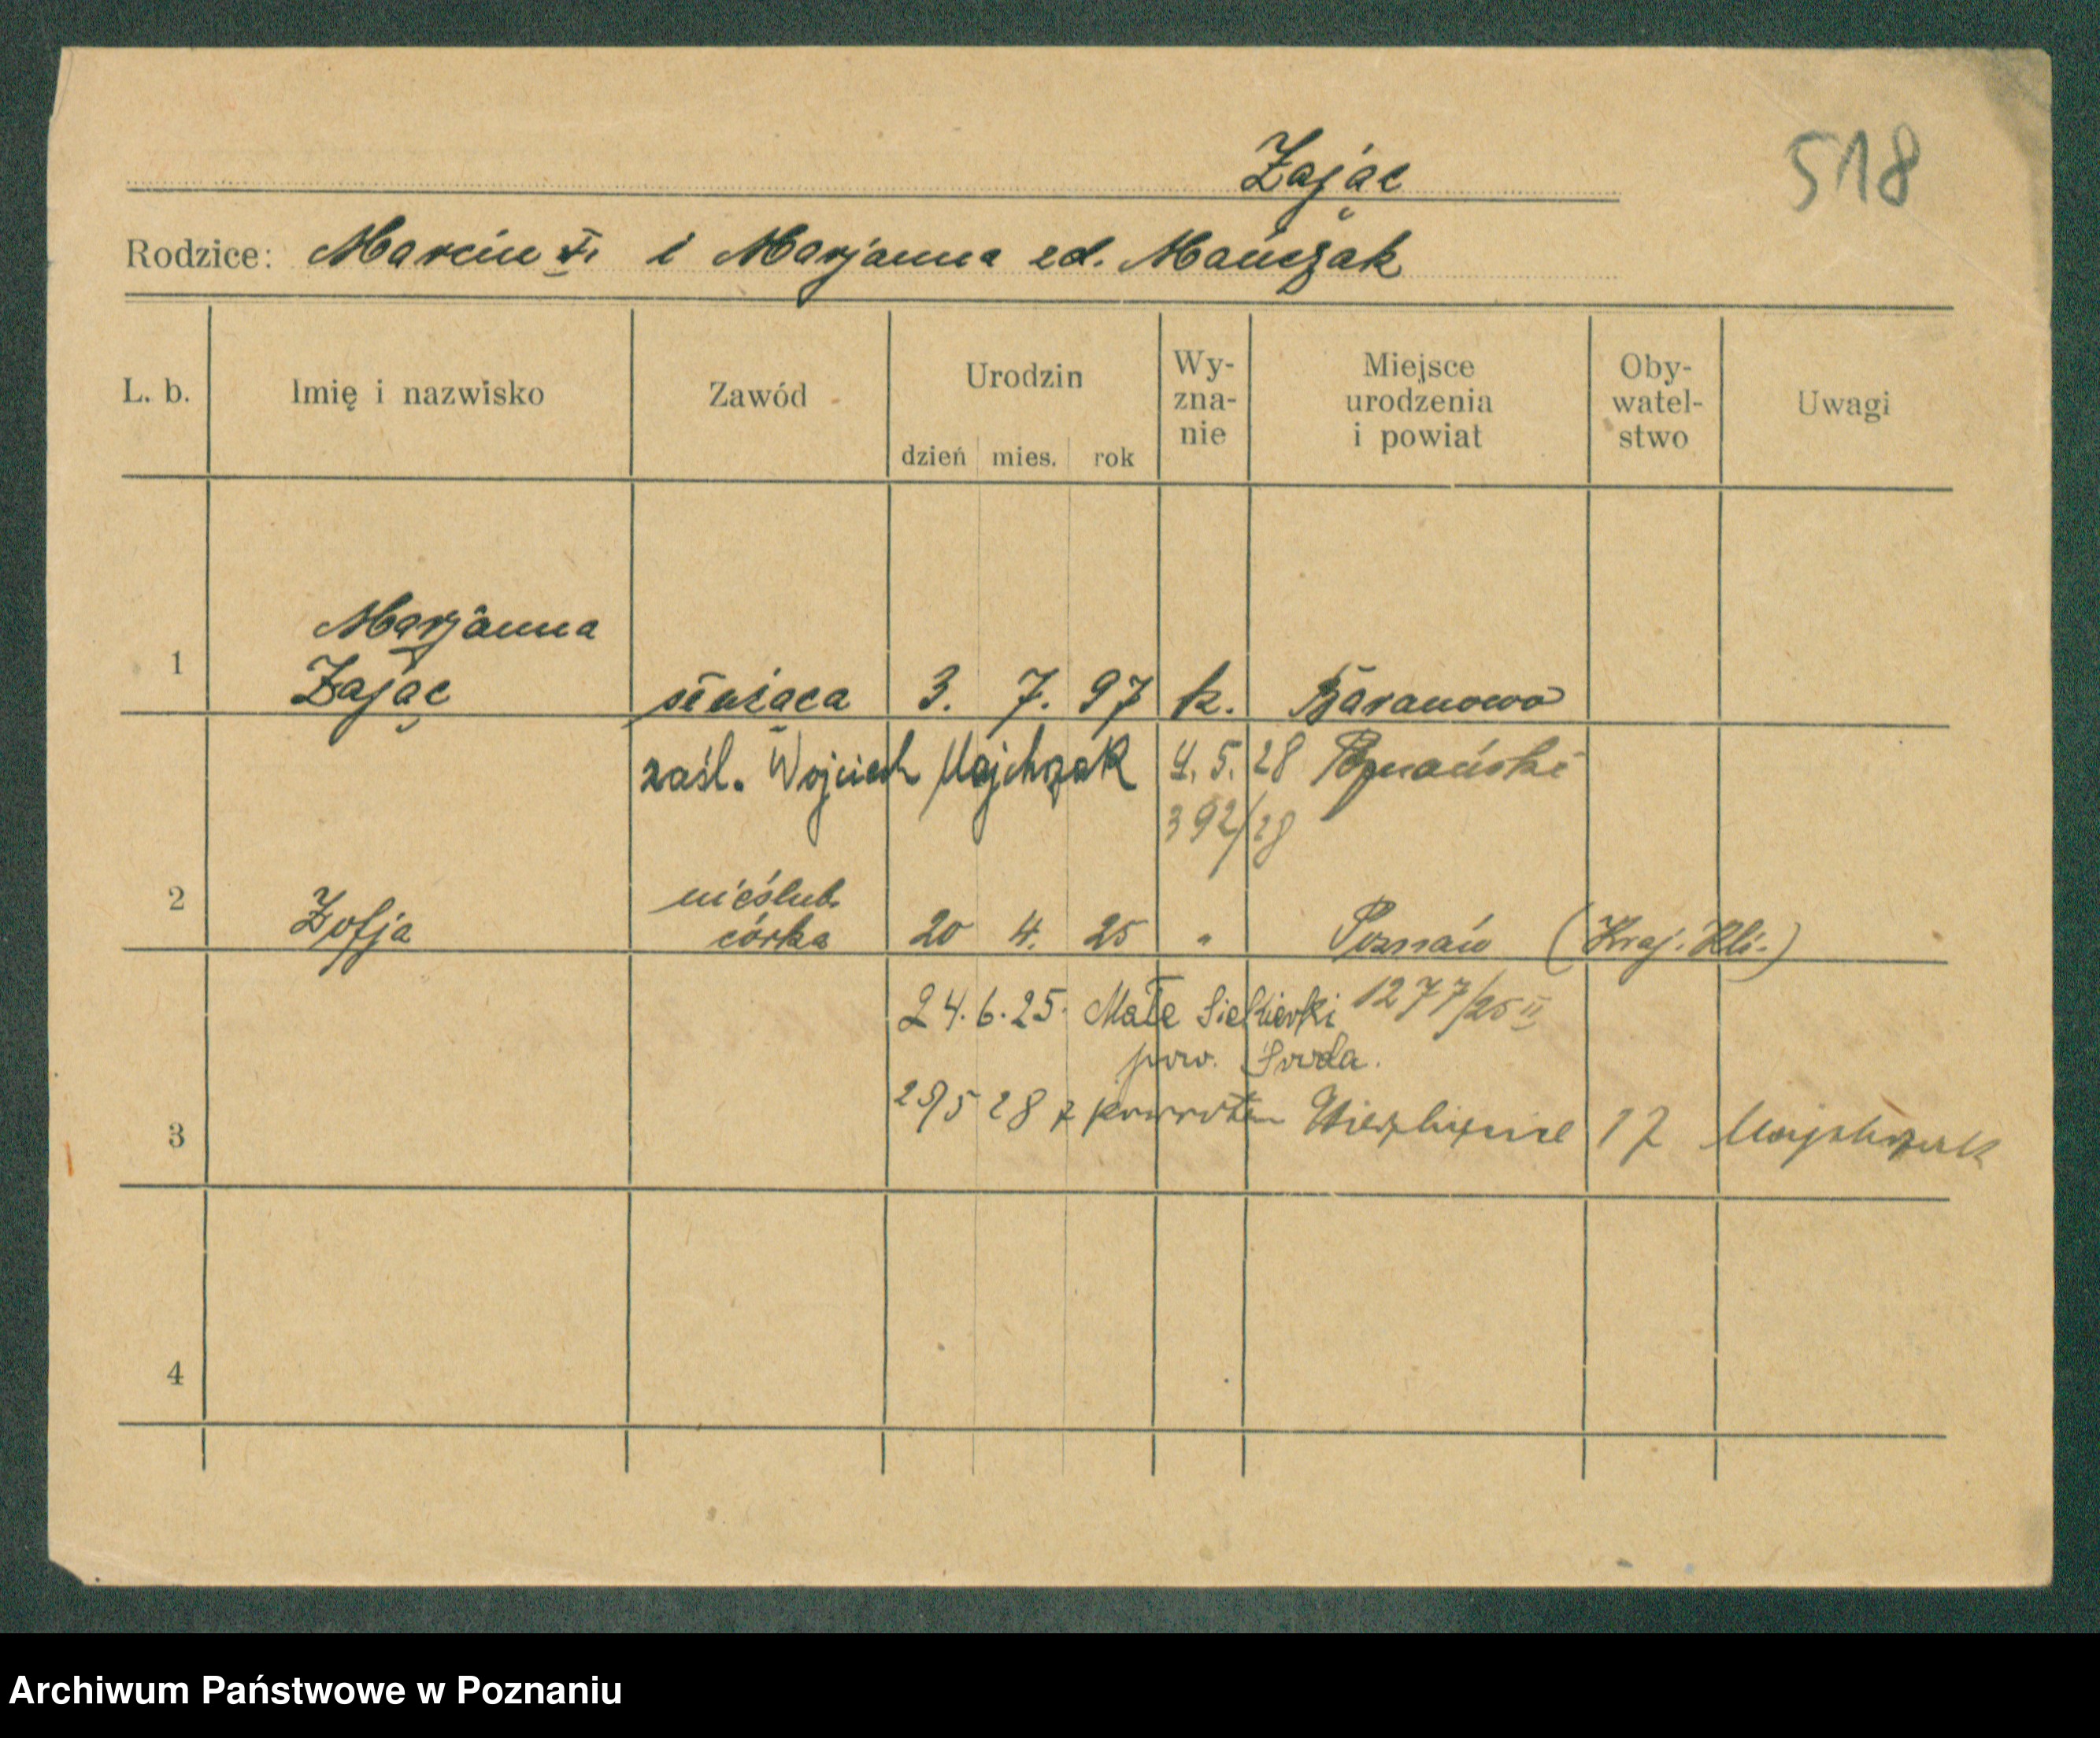 Zając
518
Rodzice: Marcin Z. i Marjanna zd. Mańczak
L. b.
Imię i nazwisko
Zawód
Urodzin
dzień mies. rok
Wy-
zna-
nie
Miejsce
urodzenia
i powiat
Oby-
watel-
stwo
Uwagi
Marjanna
1 Zając służąca 3. 7. 97 k. Baranowo
zaśl. Wojciech Majchrzak 4. 5. 28 Poznański
392/28
nieślub.
2 Zofja córka 20 4. 25 " Poznań (Kraj. Kli.)
24.6.25. Małe Siekierki 1277/25 II
pow. Środa.
3 29/5 28 z powrotem Wierzbięcice 17 Majchrzak
4
Archiwum Państwowe w Poznaniu